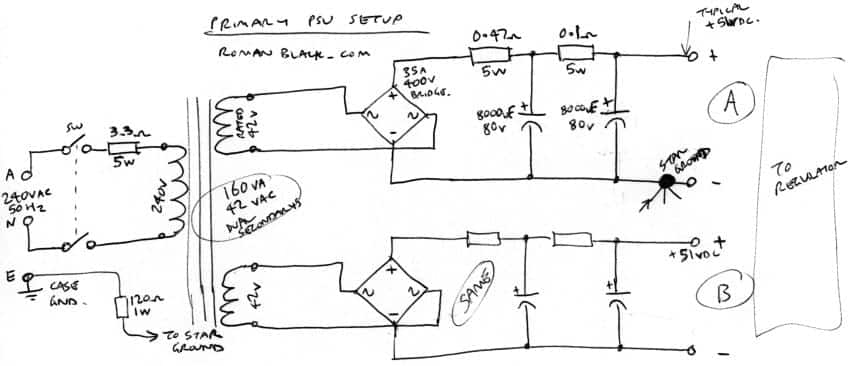 PRIMARY PSU SETUP
ROMAN BLACK.COM
TYPICAL
+51VDC.
0.47Ω
5W
0.1Ω
5W
35A
400V
BRIDGE.
+
-
~
~
8000uF
80V
+
8000uF
80V
+
+
A
STAR
GROUND
-
SW
3.3Ω
5W
A
240VAC
50HZ
N
240V
RATED
42V
160VA
42VAC
DUAL
SECONDARYS
TO
REGULATOR
E
CASE
GND.
120Ω
1W
TO STAR
GROUND
42V
+
-
~
~
SAME
+
+
+
+51VDC
B
-